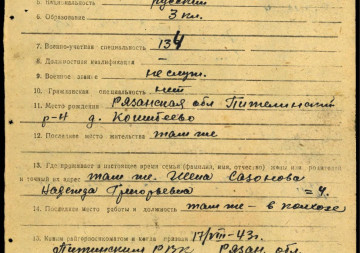 5. Национальность русский
6. Образование 3 кл.
7. Военно-учетная специальность 134
8. Должностная квалификация
9. Военное звание не служ.
10. Гражданская специальность нет
11. Место рождения Рязанская обл Пителинский
р-н д.
12. Последнее место жительства там же
13. Где проживает в настоящее время семья (фамилия, имя, отчество) жены или родителей
и точный их адрес там же. Жена Сазонова
Надежда Григорьевна =4.
14. Последнее место работы и должность там же - в колхозе
15. Каким райгорвоенкоматом и когда призван 17/VIII-43г.
РВК Рязан. обл.